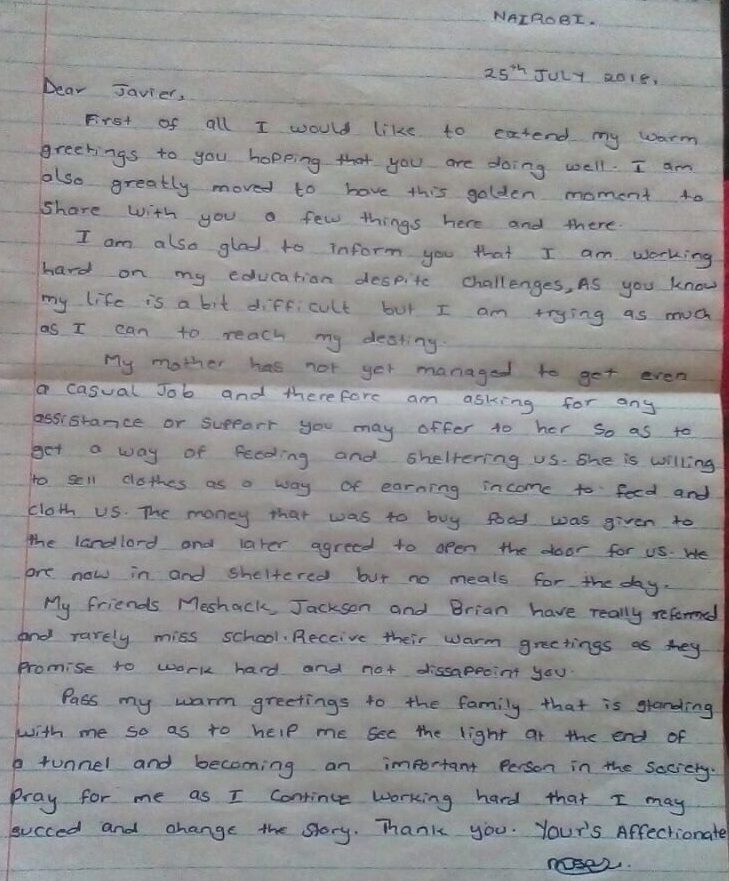 NAIROBI.
25th JULY 2018.
Dear Javier,
First of all I would like to extend my warm
greetings to you hopping that you are doing well. I am
also greatly moved to have this golden moment to
share with you a few things here and there.
I am also glad to inform you that I am working
hard on my education despite challenges, As you know
my life is a bit difficult but I am trying as much
as I can to reach my destiny.
My mother has not yet managed to get even
a casual Job and therefore am asking for any
assistance or support you may offer to her so as to
get a way of feeding and sheltering us. She is willing
to sell clothes as a way of earning income to feed and
cloth us. The money that was to buy food was given to
the landlord and later agreed to open the door for us. We
are now in and sheltered but no meals for the day.
My friends Meshack, Jackson and Brian have really reformed
and rarely miss school. Receive their warm greetings as they
promise to work hard and not dissappoint you.
Pass my warm greetings to the family that is standing
with me so as to help me see the light at the end of
a tunnel and becoming an important person in the society.
Pray for me as I continue working hard that I may
succed and change the story. Thank you. Your's Affectionate
Moses.